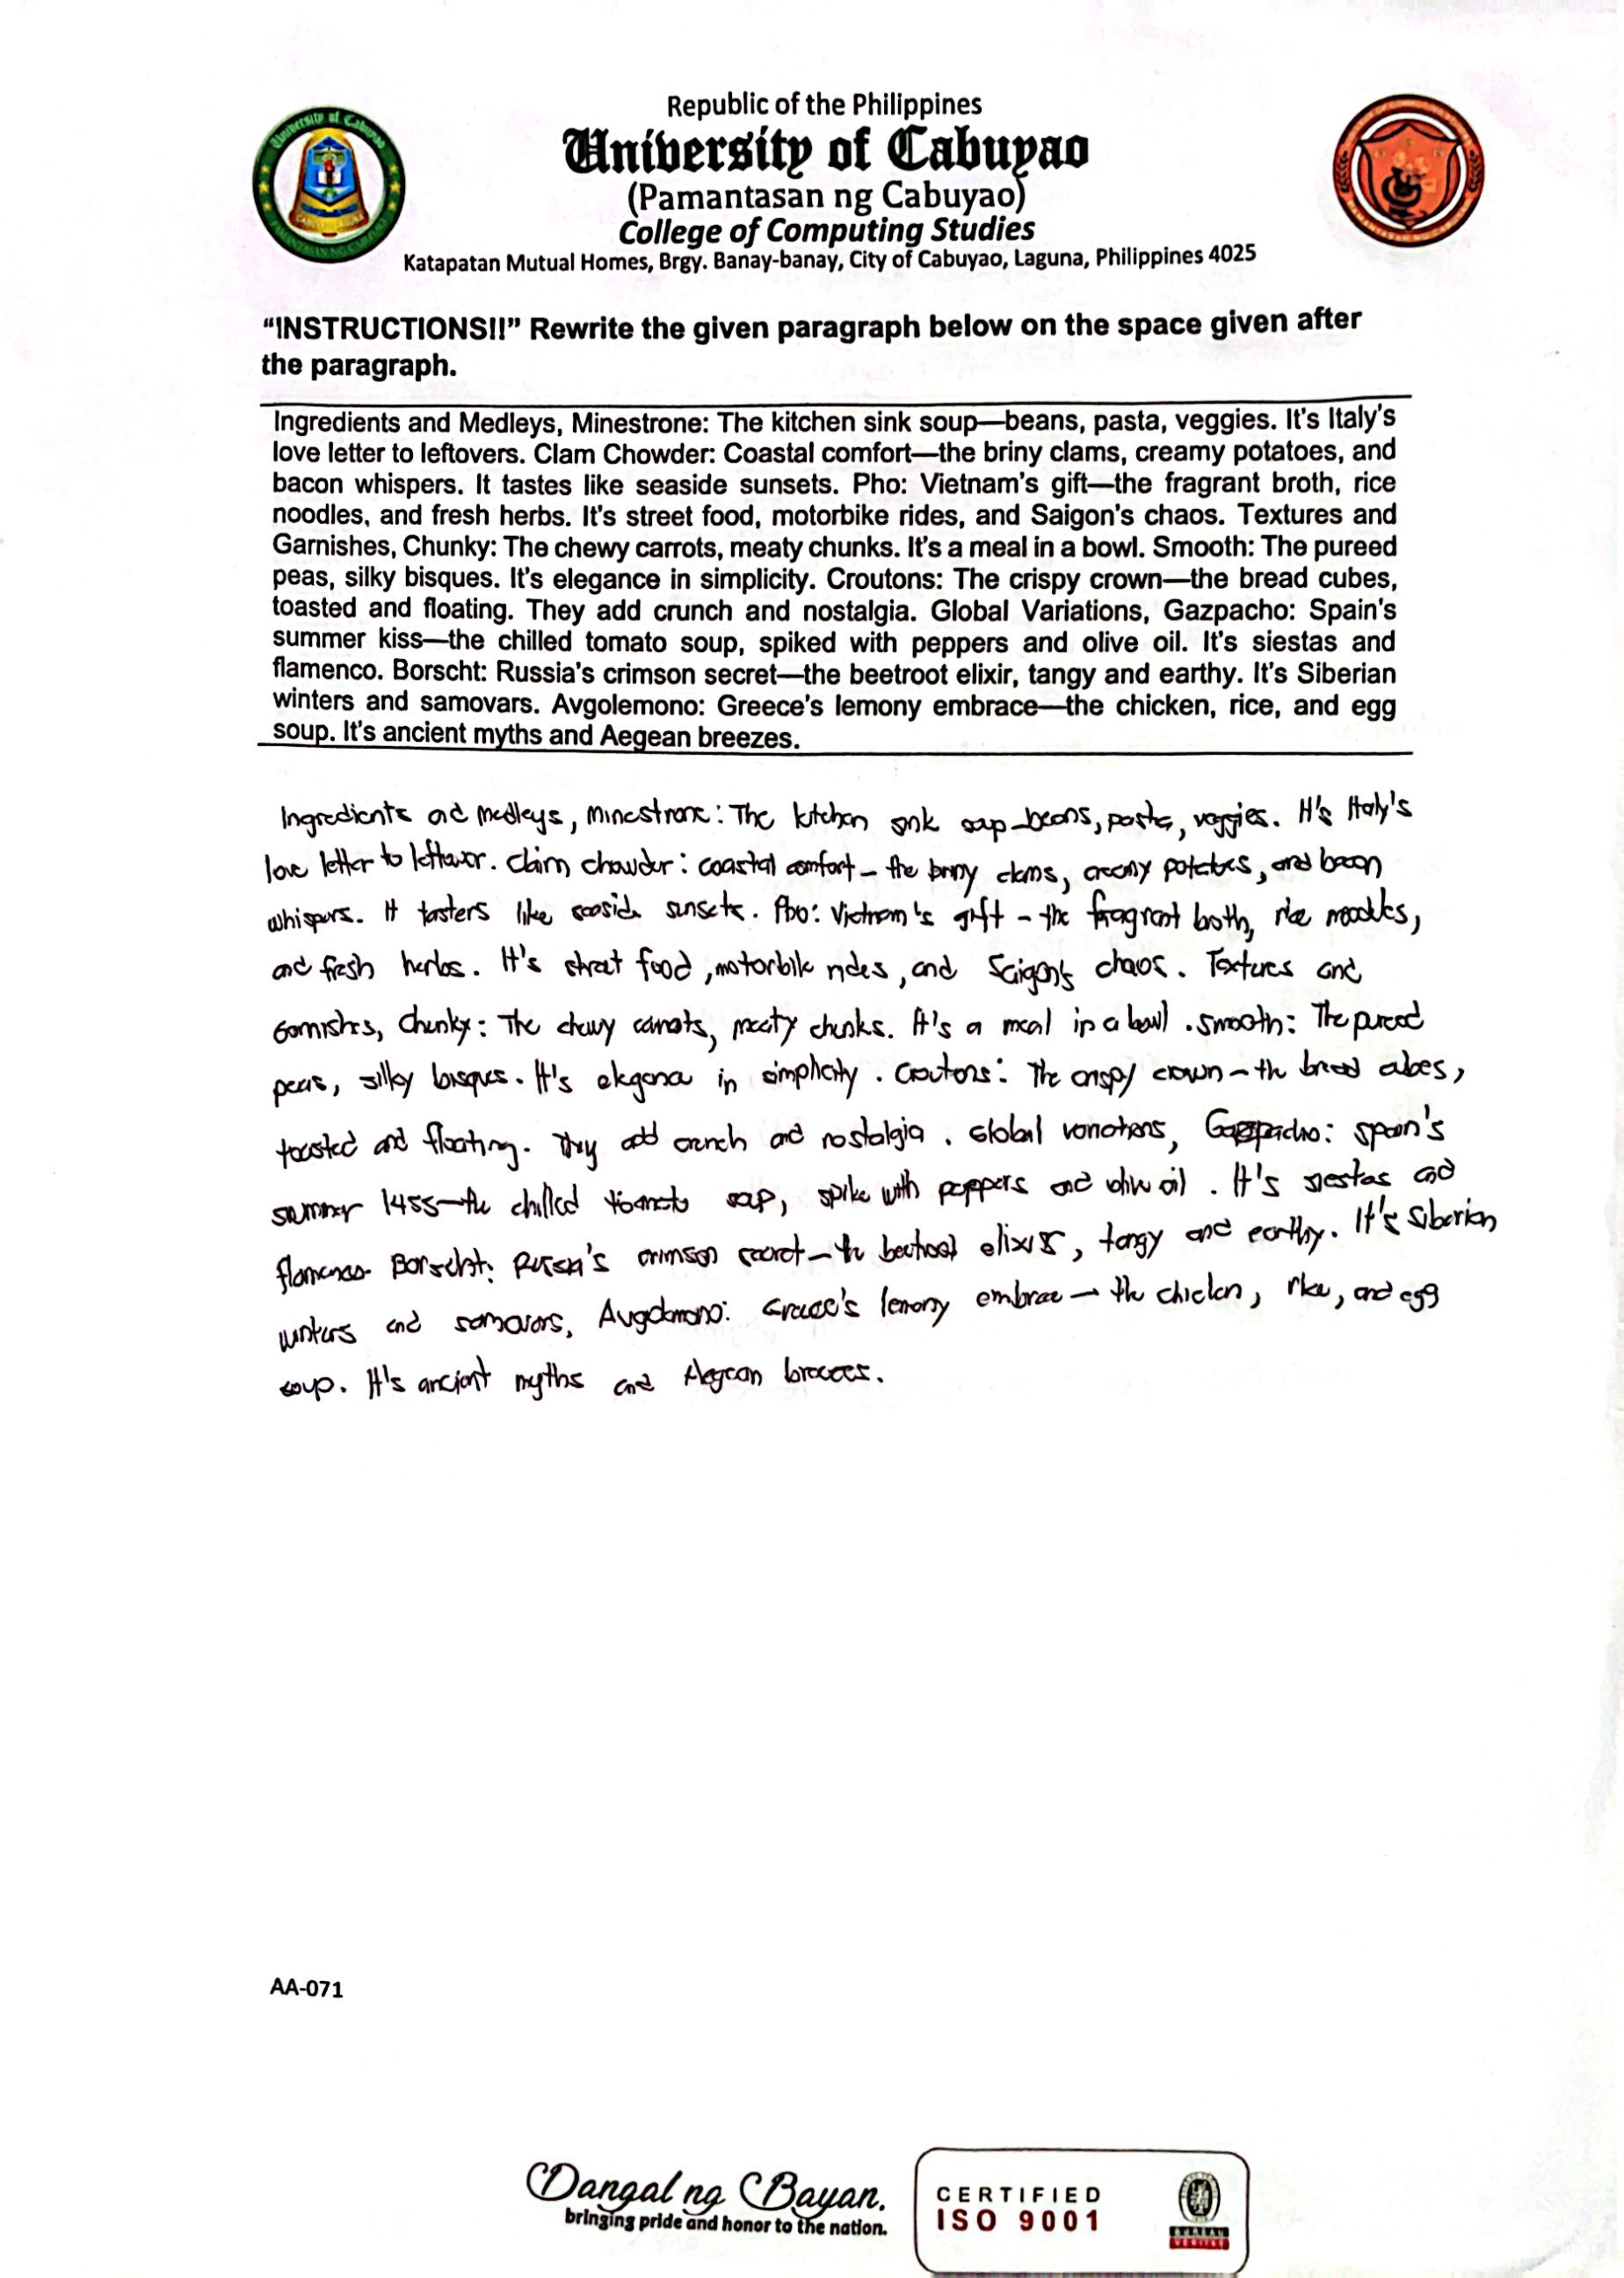 Republic of the Philippines
University of Cabuyao
(Pamantasan ng Cabuyao)
College of Computing Studies
Katapatan Mutual Homes, Brgy. Banay-banay, City of Cabuyao, Laguna, Philippines 4025
“INSTRUCTIONS!!” Rewrite the given paragraph below on the space given after
the paragraph.
Ingredients and Medleys, Minestrone: The kitchen sink soup—beans, pasta, veggies. It’s Italy’s
love letter to leftovers. Clam Chowder: Coastal comfort—the briny clams, creamy potatoes, and
bacon whispers. It tastes like seaside sunsets. Pho: Vietnam’s gift—the fragrant broth, rice
noodles, and fresh herbs. It’s street food, motorbike rides, and Saigon’s chaos. Textures and
Garnishes, Chunky: The chewy carrots, meaty chunks. It’s a meal in a bowl. Smooth: The pureed
peas, silky bisques. It’s elegance in simplicity. Croutons: The crispy crown—the bread cubes,
toasted and floating. They add crunch and nostalgia. Global Variations, Gazpacho: Spain’s
summer kiss—the chilled tomato soup, spiked with peppers and olive oil. It’s siestas and
flamenco. Borscht: Russia’s crimson secret—the beetroot elixir, tangy and earthy. It’s Siberian
winters and samovars. Avgolemono: Greece’s lemony embrace—the chicken, rice, and egg
soup. It’s ancient myths and Aegean breezes.
Ingredients and Medleys, Minestrone: The kitchen sink soup–beans, pasta, veggies. It's Italy's
love letter to leftover. Claim chowder: coastal comfort – the briny clams, creamy potatoes, and bacon
whispers. It tasters like seaside sunsets. Pho: Vietnam's gift – the fragrant both, rice noodles,
and fresh herbs. It's street food, motorbike rides, and Saigon's chaos. Textures and
Garnishes, Chunky: The chewy carrots, meaty chunks. It's a meal in a bowl. smooth: The pureed
peas, silky bisques. It's elegance in simplicity. Croutons: The crispy crown – the bread cubes,
toasted and floating. They add crunch and nostalgia. Global variations, Gazpacho: Spain's
summer kiss—the chilled tomato soup, spike with peppers and olive oil. It's siestas and
flamenco. Borscht: Russia's crimson secret – the beetroot elixir, tangy and earthy. It's Siberian
winters and samovars, Avgolemono: Greece's lemony embrace — the chicken, rice, and egg
soup. It's ancient myths and Aegean breezes.
AA-071
Dangal ng Bayan.
bringing pride and honor to the nation.
CERTIFIED
ISO 9001
BUREAU
VERITAS